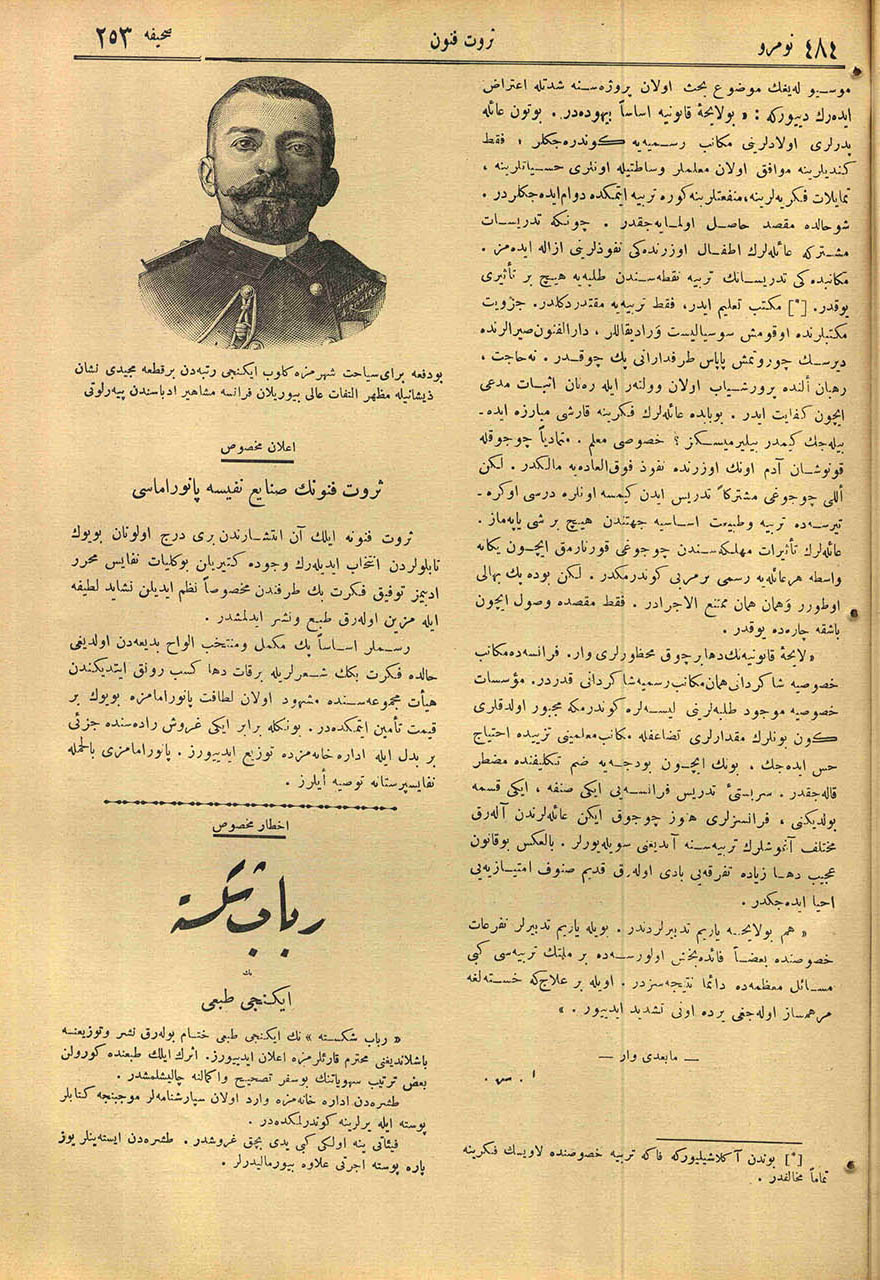 نومرو ٤٨٤
ثروت فنون
صحيفه ٢٥٣
موسيو له‌يفك موضوع بحث اولان پروژه‌سنه شدتله اعتراض
ايده‌رك دييوركه : « بولايحۀ قانونيه اساساً بيهوده‌در . بوتون عائله
پدرلرى اولادلرينى مكاتب رسميه‌يه كوندره‌جكلر ، فقط
كنديلرينه موافق اولان معلملر وساطتيله اونلرى حسياتلرينه ،
تمايلات فكريه‌لرينه، منفعتلرينه كوره تربيه ايتمكده دوام ايده‌جكلردر .
شو حالده مقصد حاصل اولمايه‌جقدر . چونكه تدريسات
مشتركه عائله‌لرك اطفال اوزرنده‌كى نفوذلرينى ازاله ايده‌مز .
مكاتبده‌كى تدريساتك تربيه نقطه‌سندن طلبه‌يه هيچ بر تأثيرى
يوقدر . [*] مكتب تعليم ايدر، فقط تربيه‌يه مقتدر دكلدر. جزويت
مكتبلرنده اوقومش سوسياليست و راديقاللر ، دارالفنون صيرالرنده
ديرسك چوروتمش پاپاس طرفدارانى پك چوقدر . نه حاجت ،
رهبان ألنده پرورشياب اولان وولتهر ايله رنان اثبات مدعى
ايچون كفايت ايدر . بوبابده عائله‌لرك فكرينه قارشى مبارزه ايده‌ـ
بيله‌جك كيمدر بيليرميسكز ؟ خصوصى معلم . متمادياً چوجوقله
قونوشان آدم اونك اوزرنده نفوذ فوق‌العاده‌يه مالكدر . لكن
أللى چوجوغى مشتركاً تدريس ايدن كيمسه اونلره درسى اوكره‌ـ
تيرسه‌ده تربيه وطبيعت اساسيه جهتندن هيچ بر شى ياپه‌ماز .
عائله‌لرك تأثيرات مهلكه‌سندن چوجوغى قورتارمق ايچون يكانه
واسطه هر عائله‌يه رسمى بر مربى كوندرمكدر . لكن بوده پك بهالى
اوطورر وهمان همان ممتنع الاجرادر . فقط مقصده وصول ايچون
باشقه چاره‌ده يوقدر .
« لايحۀ قانونيه‌نك دها بر چوق محظورلرى وار . فرانسه‌ده مكاتب
خصوصيه شاكردانى همان مكاتب رسميه شاكردانى قدردر . مؤسسات
خصوصيه موجود طلبه‌لرينى ليسه‌لره كوندرمكه مجبور اولدقلرى
كون بونلرك مقدارلرى تضاعفله مكاتب معلمينى تزييده احتياج
حس ايده‌جك ، بونك ايچون بودجه‌يه ضم تكليفنده مضطر
قاله‌جقدر . سربستئ تدريس فرانسه‌يى ايكى صنفه ، ايكى قسمه
بولديكنى ، فرانسزلرى هنوز چوجوق ايكن عائله‌لرندن آله‌رق
مختلف آغوشلرك تربيه‌سنه آتديغنى سويله‌يورلر . بالعكس بو قانون
عجيب دها زياده تفرقه‌يى بادى اوله‌رق قديم صنوف امتيازيه‌يى
احيا ايده‌جكدر .
« هم بولايحه ياريم تدبيرلردندر . بويله ياريم تدبيرلر تفرعات
خصوصنده بعضاً فائده‌بخش اولورسه‌ده بر ملتك تربيه‌سى كبى
مسائل معظمه‌ده دائما نتيجه‌سزدر . اويله بر علاج كه خسته‌لغه
مرهمساز اوله‌جغى يرده اونى تشديد ايدييور . »
— مابعدى وار —
ا . س .
[*] بوندن آكلاشيليوركه فاكه تربيه خصوصنده لاويسك فكرينه
تماماً مخالفدر .
بودفعه براى سياحت شهرمزه كلوب ايكنجى رتبه‌دن بر قطعه مجيدى نشان
ذيشانيله مظهر التفات عالى بيوريلان فرانسه مشاهير ادباسندن پيه‌ر لوتى
اعلان مخصوص
ثروت فنونك صنايع نفيسه پانوراماسى
ثروت فنونه ايلك آن انتشارندن برى درج اولونان بويوك
تابلولردن انتخاب ايديله‌رك وجوده كتيريلن بوكليات نفايس محرر
اديبمز توفيق فكرت بك طرفندن مخصوصاً نظم ايديلن نشايد لطيفه
ايله مزين اوله‌رق طبع ونشر ايدلمشدر .
رسملر اساساً پك مكمل ومنتخب الواح بديعه‌دن اولديغى
حالده فكرت بكك شعرلريله برقات دها كسب رونق ايتديكندن
هيأت مجموعه‌سنده مشهود اولان لطافت پانورامامزه بويوك بر
قيمت تأمين ايتمكده‌در . بونكله برابر ايكى غروش راده‌سنده جزئى
بر بدل ايله اداره‌خانه‌مزده توزيع ايدييورز . پانورامامزى بالجمله
نفايسپرستانه توصيه أيلرز .
اخطار مخصوص
رباب شكسته
نك
ايكنجى طبعى
« رباب شكسته » نك ايكنجى طبعى ختام بوله‌رق نشر وتوزيعنه
باشلانديغنى محترم قارئلرمزه اعلان ايدييورز . اثرك ايلك طبعنده كورولن
بعض ترتيب سهوياتنك بوسفر تصحيح واكمالنه چاليشلمشدر .
طشره‌دن اداره‌خانه‌مزه وارد اولان سپارشنامه‌لر موجبنجه كتابلر
پوسته ايله يرلرينه كوندرلمكده‌در .
فيئاتى ينه اولكى كبى يدى بچق غروشدر . طشره‌دن ايسته‌ينلر يوز
پاره پوسته اجرتى علاوه بيورمليدرلر .